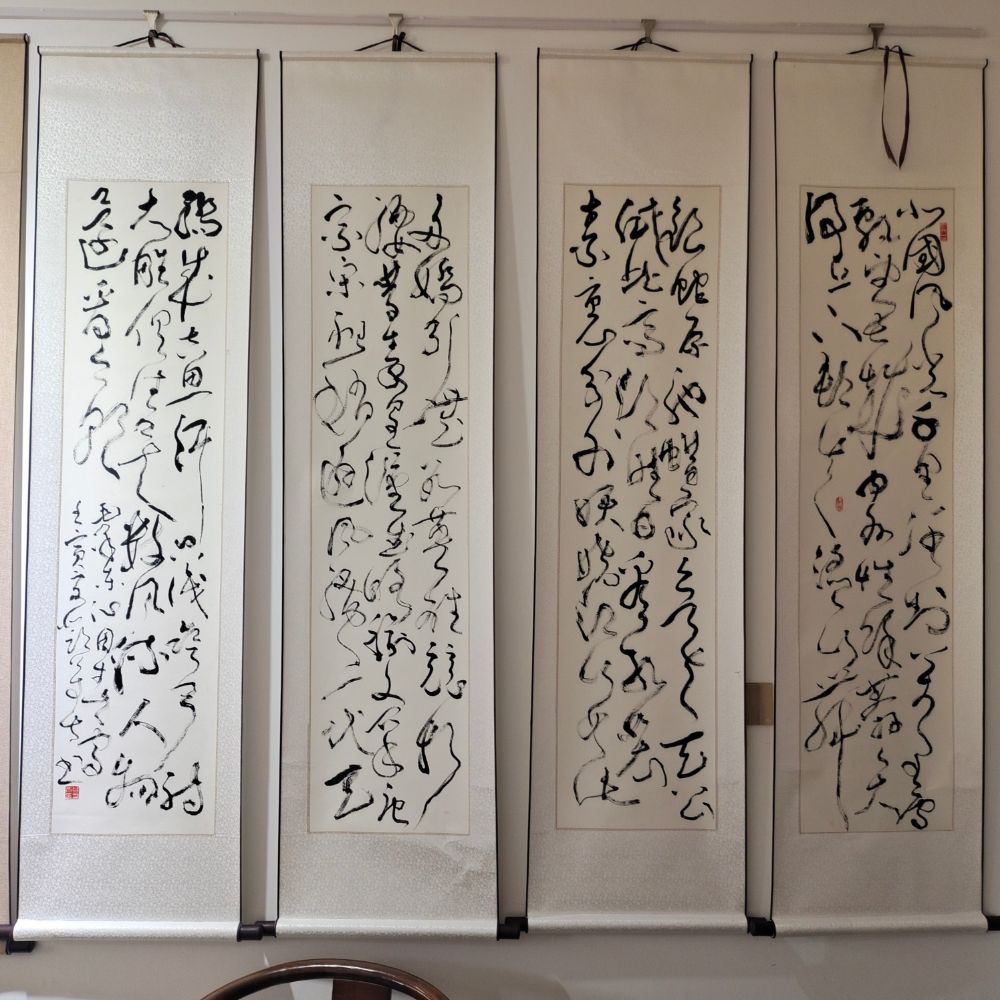 北國風光千里冰封万里雪
飘望长城内外惟馀莽莽大
河上下頓失滔滔山舞
銀蛇原馳蠟象欲与天公
試比高須晴日看紅装
素裹分外妖娆江山如此
多嬌引無数英雄競折
腰惜秦皇漢武略输文采唐
宗宋祖稍逊风骚一代天
骄成吉思汗只識弯弓射
大雕俱往矣数風流人物
還看今朝
毛泽东沁园春雪
壬寅
书